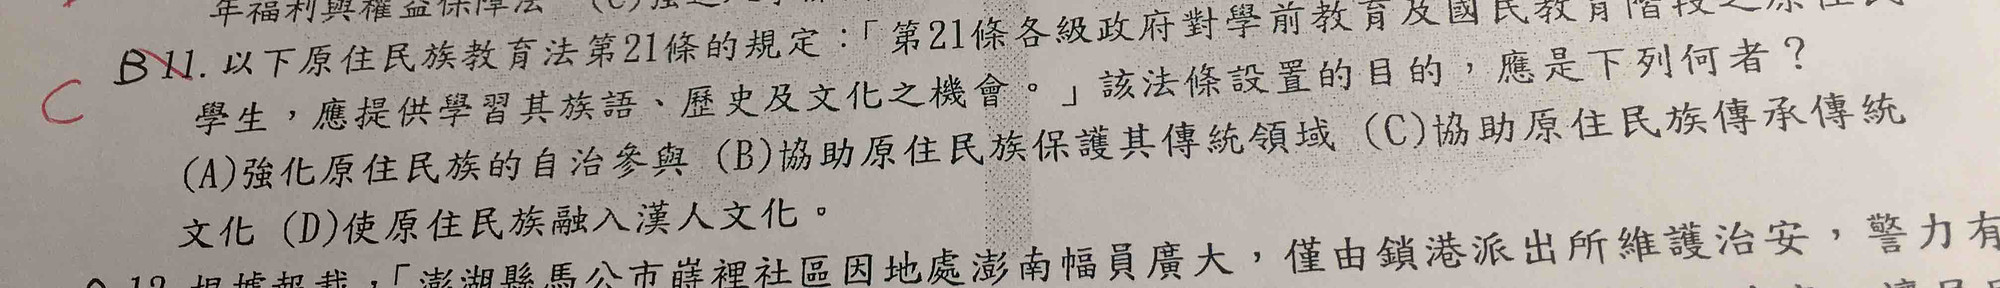 年福利與權益保障法 (C)強
B 11. 以下原住民族教育法第21條的規定：「第21條各級政府對學前教育及國民教育階段之原住民
C
學生，應提供學習其族語、歷史及文化之機會。」該法條設置的目的，應是下列何者？
(A)強化原住民族的自治參與 (B)協助原住民族保護其傳統領域 (C)協助原住民族傳承傳統
文化 (D)使原住民族融入漢人文化。
12. 根據報載，「澎湖縣馬公市嵵裡社區因地處澎南幅員廣大，僅由鎖港派出所維護治安，警力有